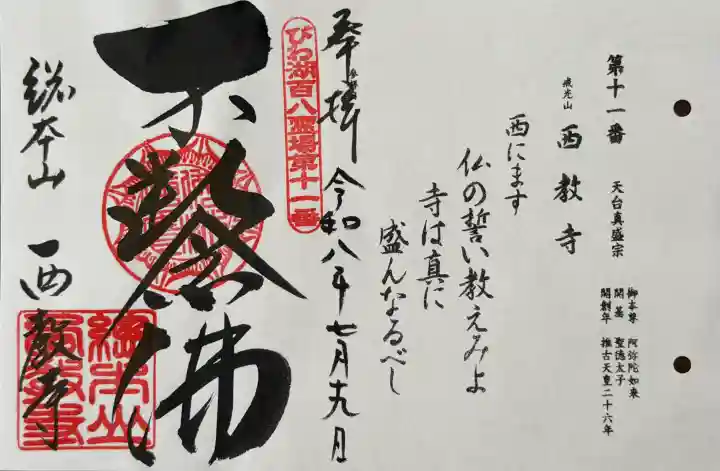 第十一番　天台真盛宗
戒光山　西教寺
御本尊　阿弥陀如来
開基　聖徳太子
開創年　推古天皇二十六年
西にます
仏の誓い教えみよ
寺は真に
盛んなるべし
奉拝　令和八年七月十九日
びわ湖百八霊場第十一番
不断念佛
総本山　西教寺